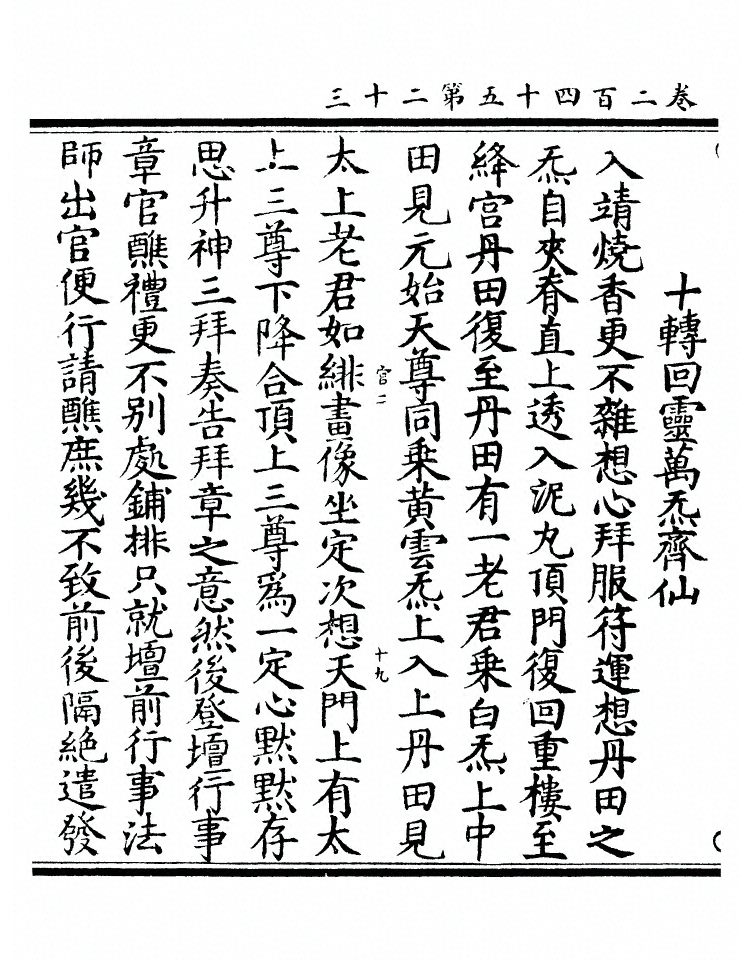 卷二百四十五第二十三
十轉回靈萬炁齊仙
入靖燒香更不雜想心拜服符運想丹田之
炁自夾脊直上透入泥丸頂門復回重樓至
絳宮丹田復至丹田有一老君乘白炁上中
田見元始天尊同乘黃雲炁上入上丹田見
官二
十九
太上老君如緋畫像坐定次想天門上有太
上三尊下降合頂上三尊為一定心默默存
思升神三拜奏告拜章之意然後登壇行事
章官醮禮更不別處鋪排只就壇前行事法
師出官便行請醮庶幾不致前後隔絕遣發